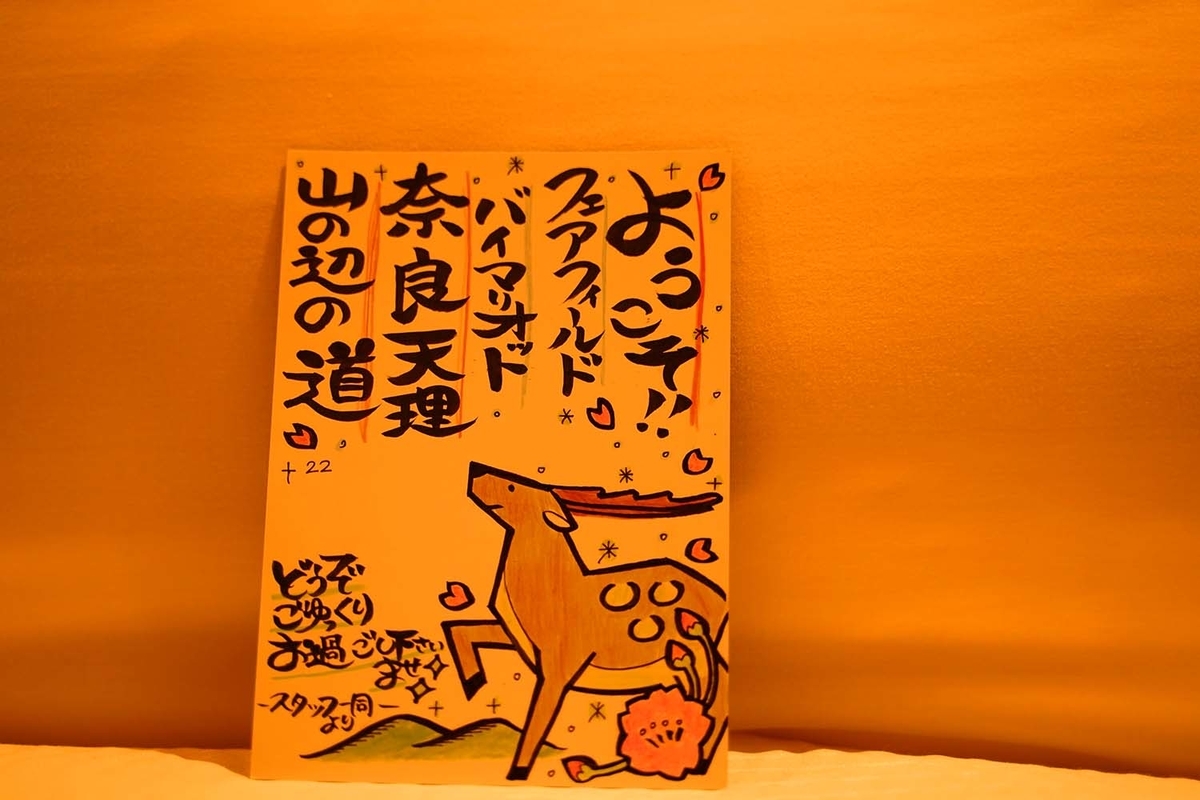 ようこそ!!
フェアフィールド
バイマリオット
奈良天理
山の辺の道
22
どうぞ
ごゆっくり
お過ごし下さい
ませ
-スタッフ一同-
より